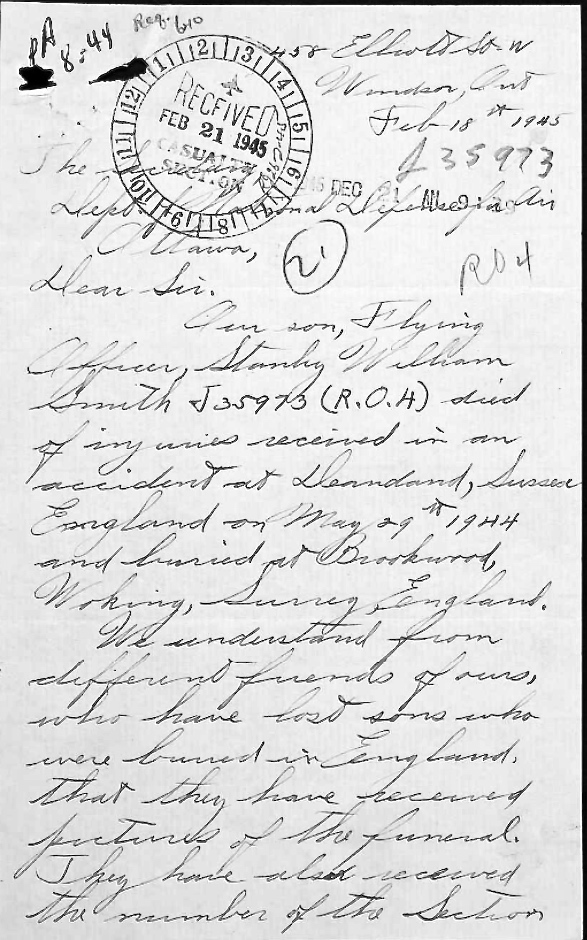 PA
8-44
Req. 610
458 Elliott St. W
Windsor, Ont
Feb 18th 1945
J35973
RECEIVED
FEB 21 1945
CASUALTY
SECTION
12 1 2 3 4 5 6 7 8 9 10 11
DEC 21
The Secretary
Dept. of National Defense for Air
Ottawa,
2
R04
Dear Sir.
Our son, Flying
Officer, Stanley William
Smith J35973 (R.O.4) died
of injuries received in an
accident at Deandand, Sussex
England on May 29th 1944
and buried at Brookwood,
Woking, Surrey, England.
We understand from
different friends of ours,
who have lost sons who
were buried in England,
that they have received
pictures of the funeral.
They have also received
the number of the Section